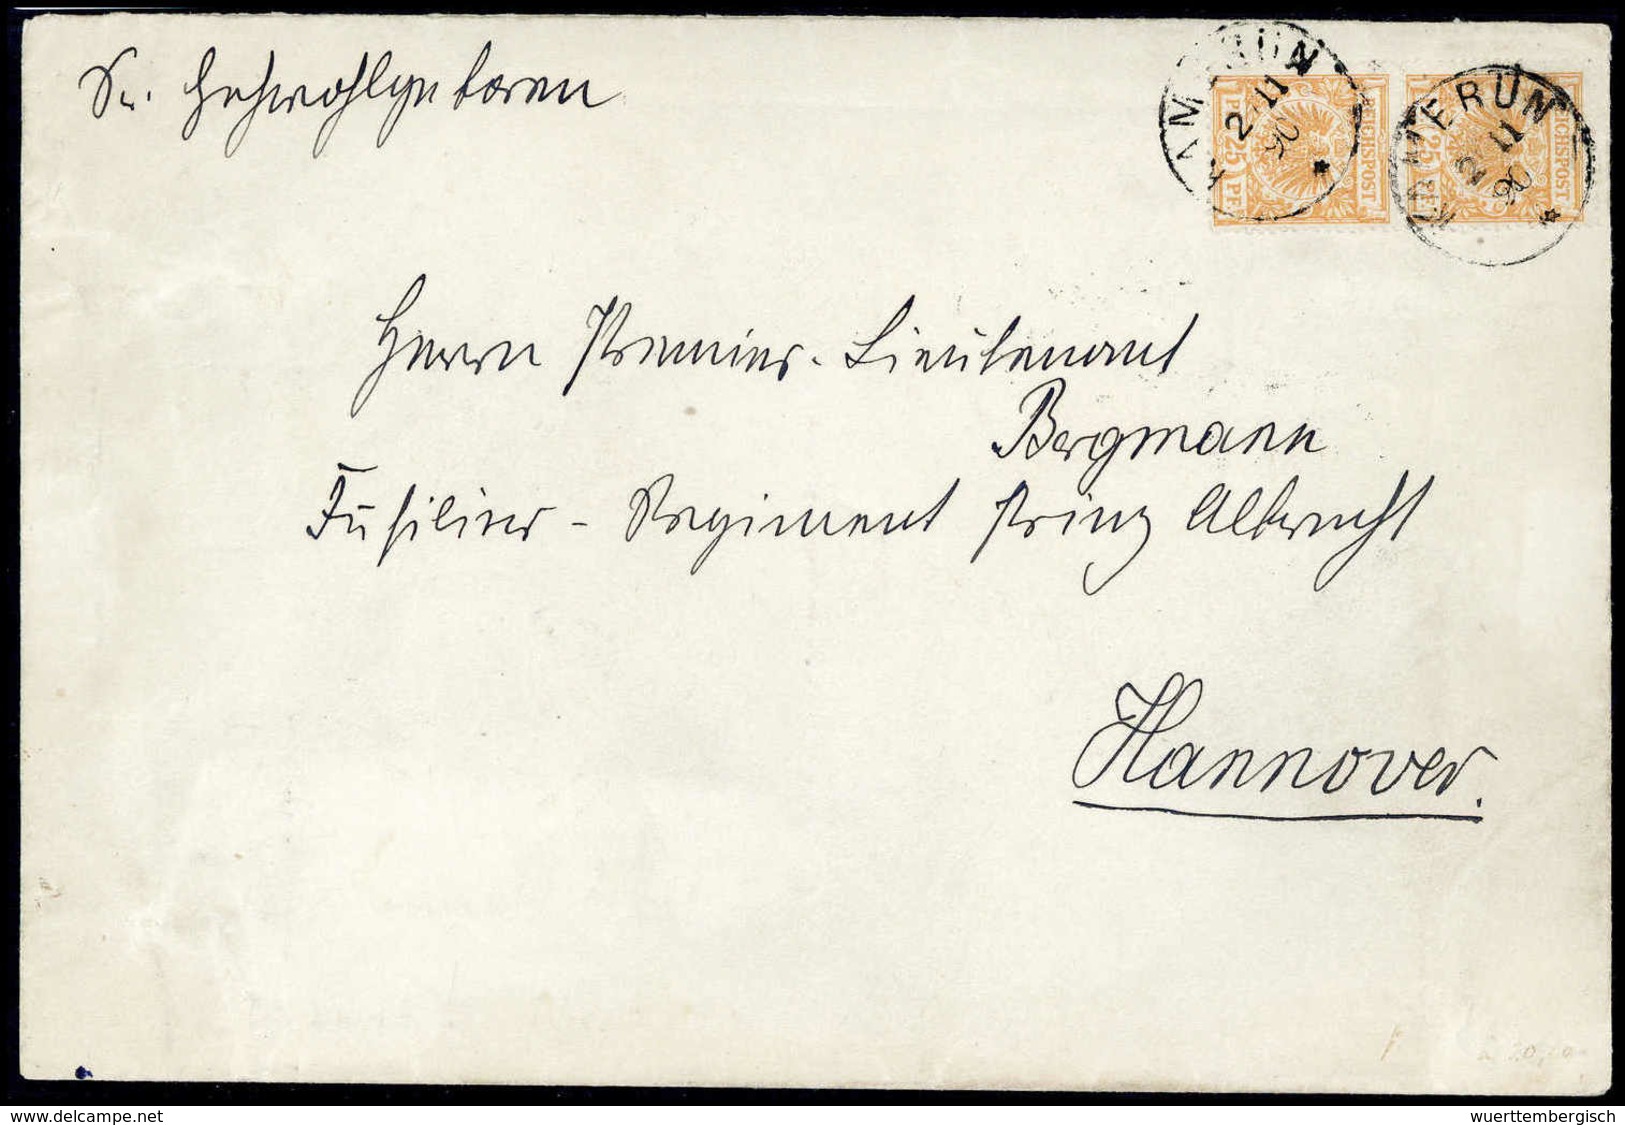 Sr. Hochwohlgeboren
KAMERUN
2/11
90
*
REICHSPOST
PF 25 PF
KAMERUN
2/11
90
*
REICHSPOST
25 PF
Herrn Premier-Lieutenant
Bergmann
Füsilier-Regiment Prinz Albrecht
Hannover.
www.delcampe.net
wuerttembergisch